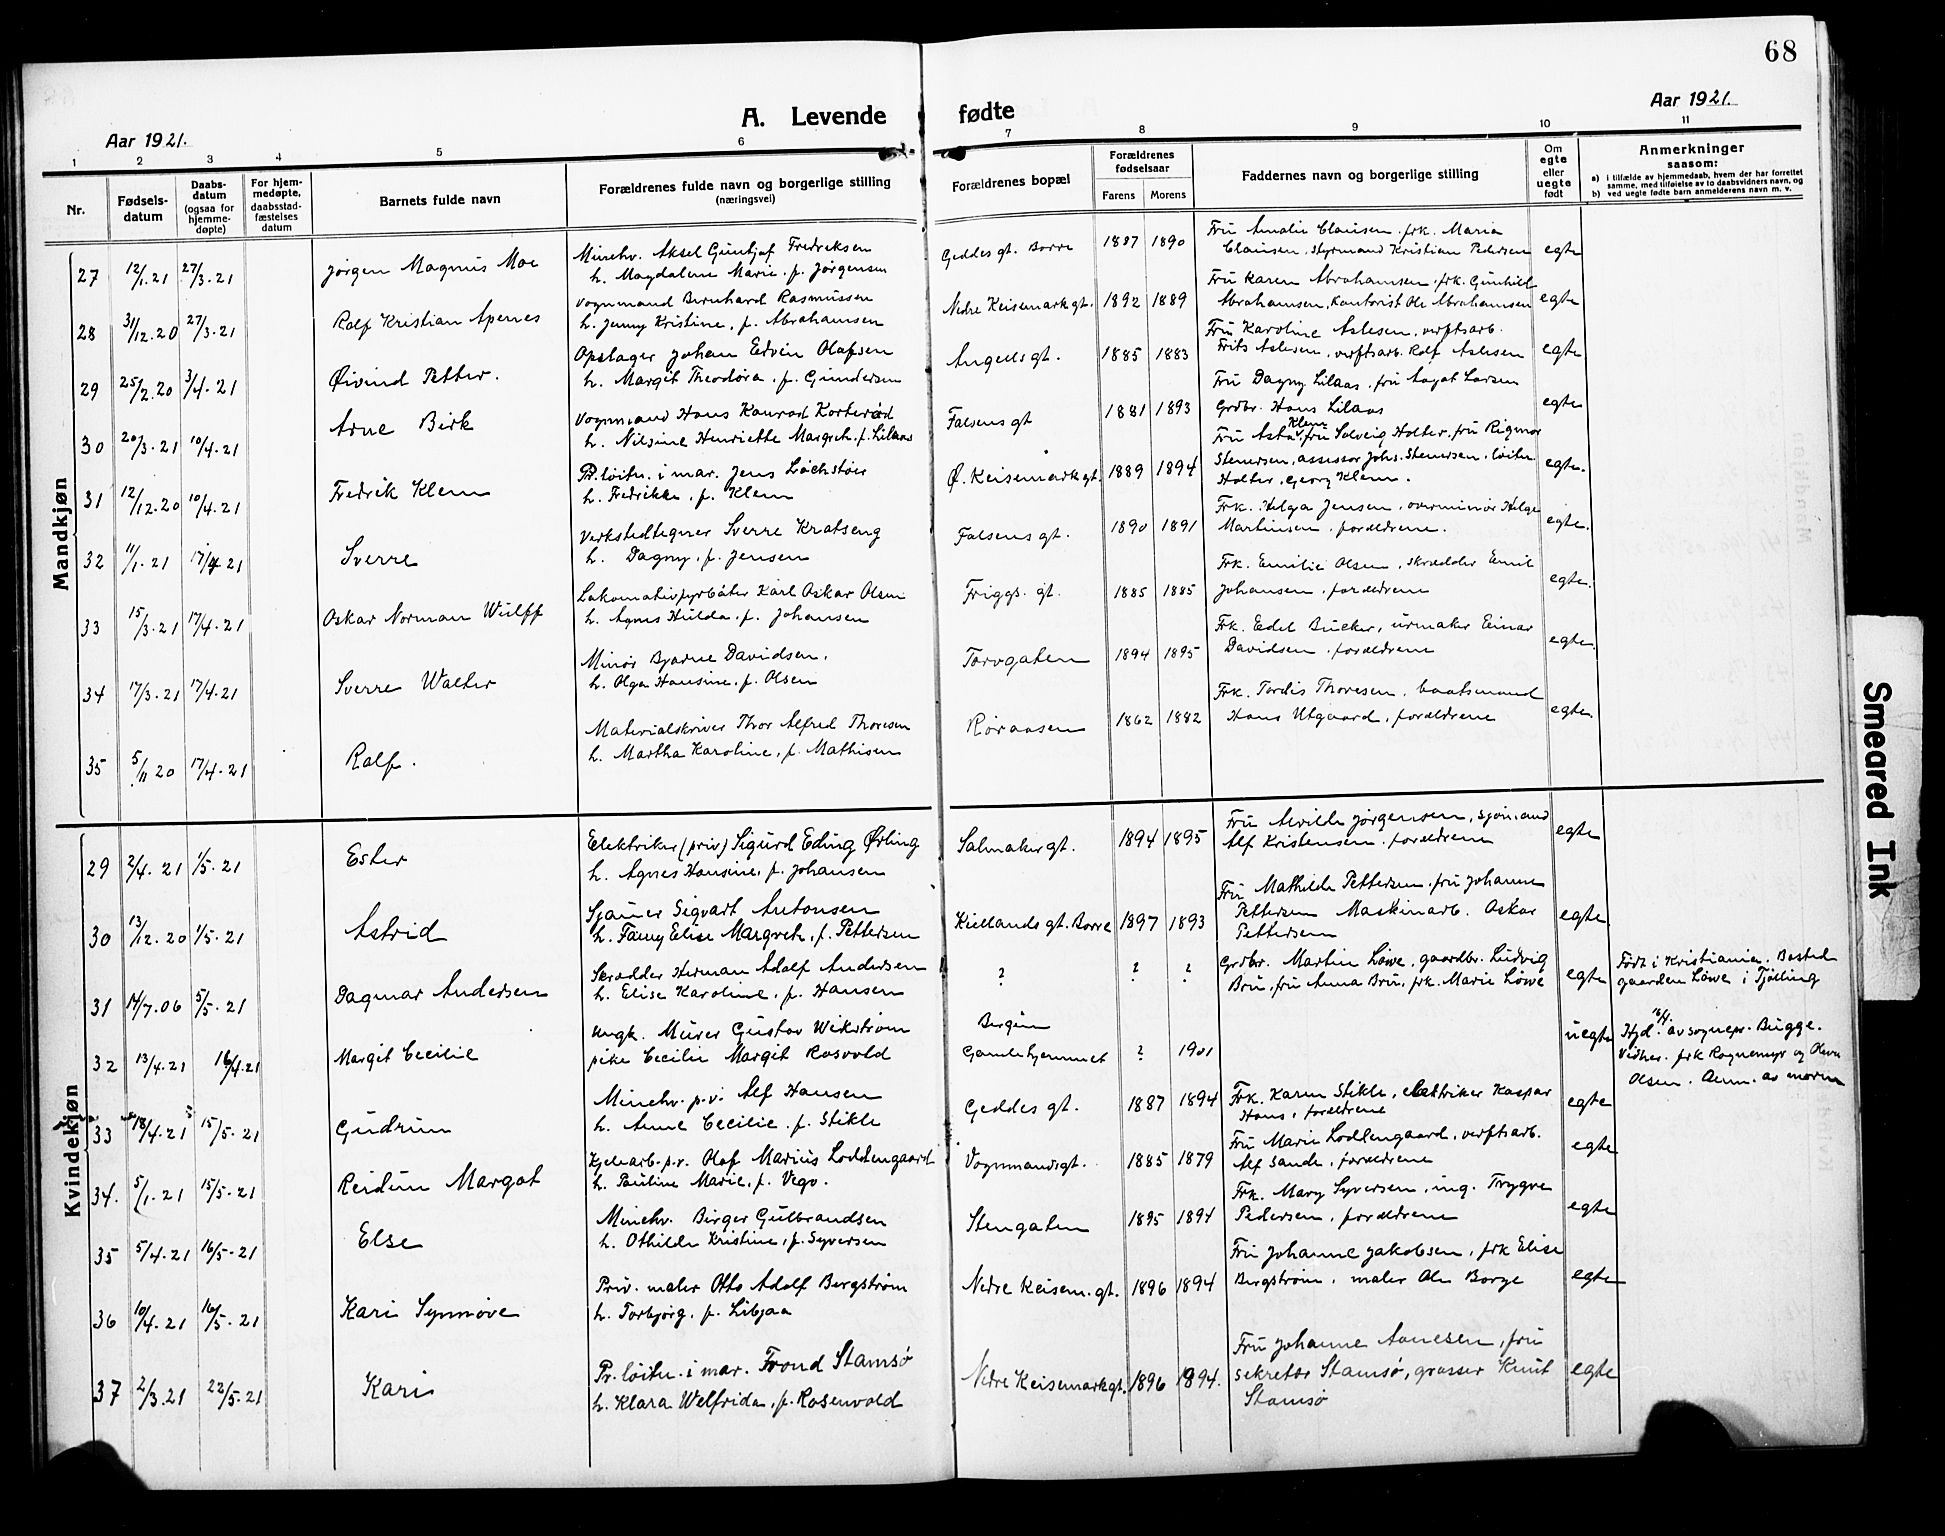 68
Aar 1921.
A. Levende fødte
Aar 1921.
1 2 3 4 5 6 7 8 9 10 11
Nr.
Fødsels-
datum
Daabs-
datum
(ogsaa for
hjemme-
døpte)
For hjem-
medøpte,
daabsstad-
fæstelses
datum
Barnets fulde navn
Forældrenes fulde navn og borgerlige stilling
(næringsvei)
Forældrenes bopæl
Forældrenes
fødselsaar
Farens Morens
Faddernes navn og borgerlige stilling
Om
egte
eller
uegte
født
Anmerkninger
saasom:
a) i tilfælde av hjemmedaab, hvem der har forrettet
samme, med tilføielse av to daabsvidners navn, og
b) ved uegte fødte barn anmelderens navn m. v.
Mandkjøn
27 12/1.21 27/3.21 Jørgen Magnus Moe
Minehv. Aksel Gunhjof Fredreksen
h. Magdalene Marie, f. Jørgensen
Geddes gt. Borre 1887 1890
Fru Amalie Clausen, frk. Maria
Clausen, Styrmand Kristian Pedersen egte
28 31/12.20 27/3.21 Rolf Kristian Apenes
Vognmand Bernhard Rasmussen
h. Jenny Kristine, f. Abrahamsen
Nedre Keisemark gt. 1892 1889
Fru Karen Abrahamsen, frk. Gunhild
Abrahamsen, Kontorist Ole Abrahamsen egte
29 25/2.20 3/4.21 Øivind Petter.
Opslager Johan Edvin Olafsen
h. Margit Theodora, f. Gundersen
Angells gt. 1885 1883
Fru Karoline Aslesen, verftsarb.
Frits Aslesen, verftsarb. Rolf Aslesen egte
30 20/3.21 10/4.21 Arne Birk
Vognmand Hans Konrad Korterød
h. Nilsine Henriette Margreth, f. Lilaas
Falsens gt 1881 1893
Fru Dagny Lilaas, fru Aagot Larsen
Grdbr. Hans Lilaas egte
31 12/12.20 10/4.21 Fredrik Klem
Pr. løitn. i mar. Jens Løchstøer
h. Fredrikke, f. Klem
Ø. Keisemark gt. 1889 1894
Fru Asta Klem, fru Solveig Holter, fru Rigmor
Stenersen, assessor Johs. Stenersen, løitn
Holter, Georg Klem. egte.
32 11/1.21 17/4.21 Sverre
Verkstedtegner Sverre Kratseng
h. Dagny, f. Jensen
Falsens gt. 1890 1891
Frk. Helga Jensen, overminør Helge
Martinsen, forældrene. egte.
33 15/3.21 17/4.21 Oskar Norman Wulff
Lokomotivfyrbøter Karl Oskar Olsen
h. Agnes Hulda, f. Johansen
Friggs. gt. 1885 1885
Frk. Emilie Olsen, skrædder Emil
Johansen, forældrene egte.
34 17/3.21 17/4.21 Sverre Walter
Minør Bjarne Davidsen.
h. Olga Hansine, f. Olsen
Torvgaten 1894 1895
Frk. Edel Bücker, urmaker Einar
Davidsen, forældrene egte.
35 5/11 20 17/4.21 Rolf.
Materialskriver Thor Alfred Thoresen
h. Martha Karoline, f. Mathisen
Røraasen 1862 1882
Frk. Tordis Thoresen, baatsmand
Hans Utgaard, forældrene egte.
Kvindekjøn
29 2/4.21 1/5.21 Ester
Elektriker (priv) Sigurd Eding Ørling
h. Agnes Hansine, f. Johansen
Salmaker gt. 1894 1895
Fru Alvilde Jørgensen, sjømand
Alf Kristensen, forældrene egte
30 13/12.20 1/5.21 Astrid
Sjauer Sigvart Antonsen
h. Fanny Elise Margreth, f. Pettersen
Kiellands gt. Borre 1897 1893
Fru Mathilde Pettersen, fru Johanne
Pettersen Maskinarb. Oskar
Pettersen egte
31 14/7.06 5/5.21 Dagmar Andersen
Skrædder Herman Adolf Andersen
h. Elise Karoline, f. Hansen
? ? ?
Grdbr. Martin Løwe, gaardbr. Ludvig
Bru, fru Anna Bru, frk. Marie Løwe egte
Født i Kristiania. Bosted
gaarden Løwe i Tjølling
32 13/4.21 16/4.21 Margit Cecilie
Ungk. Murer Gustav Wikstrøm
pike Cecilie Margit Rosvold
Bergen
Gamlehjemmet ? 1901 uegte
Hjd. 16/4. av sognepr. Bugge.
Vidner. frk Rognemyr og Olava
Olsen. Anm. av moren
33 18/4.21 15/5.21 Gudrun
Minehv. p.v. Alf Hansen
h. Anne Cecilie, f. Stikle
Geddes gt. 1887 1894
Frk. Karen Stikle, elektriker Kaspar
Hans, forældrene egte
34. 5/1.21 15/5.21 Reidun Margot
Kjelearb. p.v. Olaf Marius Loddengaard
h. Pauline Marie, f. Vego.
Vognmandsgt. 1885 1879
Fru Marie Loddengaard, verftsarb.
Alf Sande, forældrene egte
35 5/4.21 16/5.21 Else
Minehv. Birger Gulbrandsen
h. Othilde Kristine, f. Syversen
Stengaten 1895 1894
Frk. Mary Syversen, ing. Trygve
Pedersen, forældrene egte
36 10/4.21 16/5.21 Kari Synnøve
Priv. maler Otto Adolf Bergstrøm
h. Torbjørg, f. Libjaa
Nedre Keisem. gt. 1896 1894
Fru Johanne Jakobsen, frk Elise
Bergstrøm, maler Ole Borge egte
37 2/3.21 22/5.21 Kari
Pr. løitn. i mar. Trond Stamsø
h. Klara Welfrida, f. Rosenvold
Nedre Keisemarkgt. 1896 1894.
Fru Johanne Aanesen, fru
sekretær Stamsø, grosser Knut
Stamsø egte
Smeared Ink